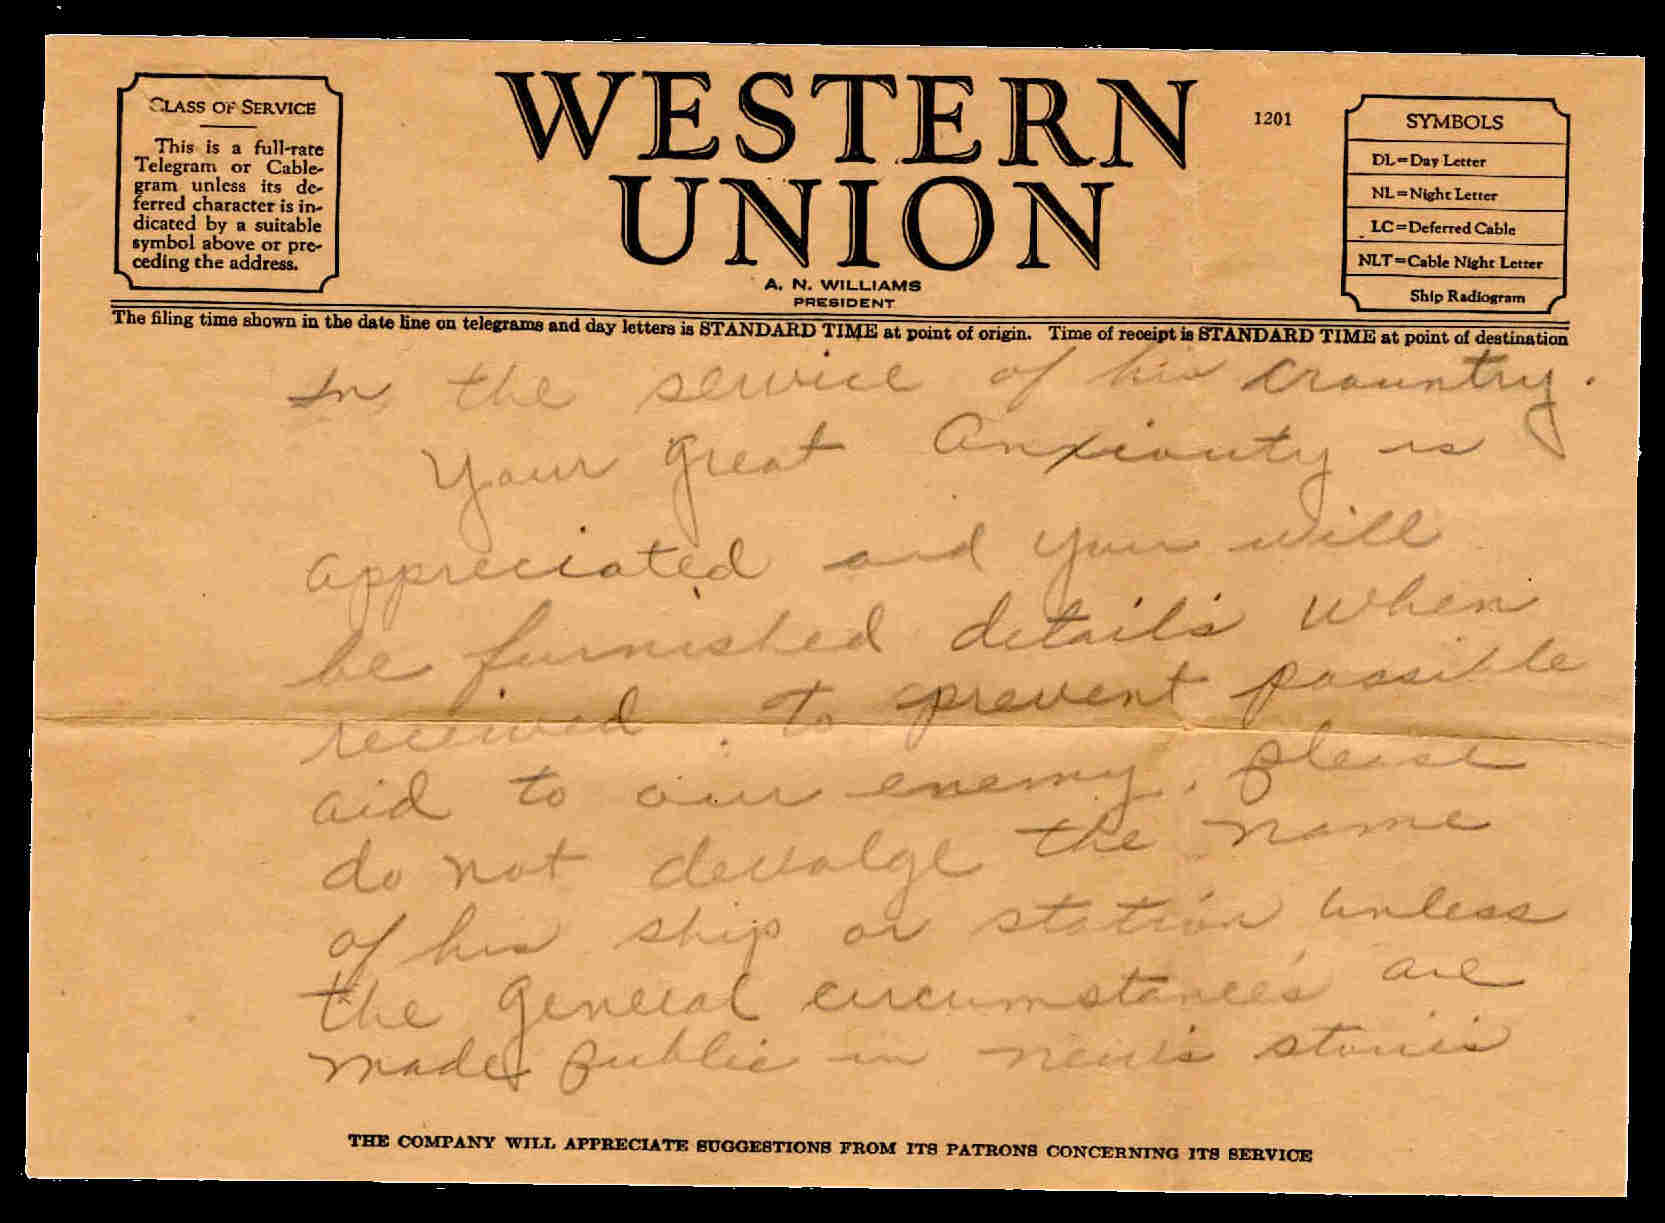 CLASS OF SERVICE
This is a full-rate
Telegram or Cable-
gram unless its de-
ferred character is in-
dicated by a suitable
symbol above or pre-
ceding the address.
WESTERN
UNION
A. N. WILLIAMS
PRESIDENT
1201
SYMBOLS
DL=Day Letter
NL=Night Letter
LC=Deferred Cable
NLT=Cable Night Letter
Ship Radiogram
The filing time shown in the date line on telegrams and day letters is STANDARD TIME at point of origin. Time of receipt is STANDARD TIME at point of destination
In the service of his crountry.
Your great Anxiouty is
appreciated and your will
be furnished details when
received. to prevent possible
aid to our enemy, please
do not devalge the name
of his ship or station unless
the General circumstances are
made public in news stories
THE COMPANY WILL APPRECIATE SUGGESTIONS FROM ITS PATRONS CONCERNING ITS SERVICE